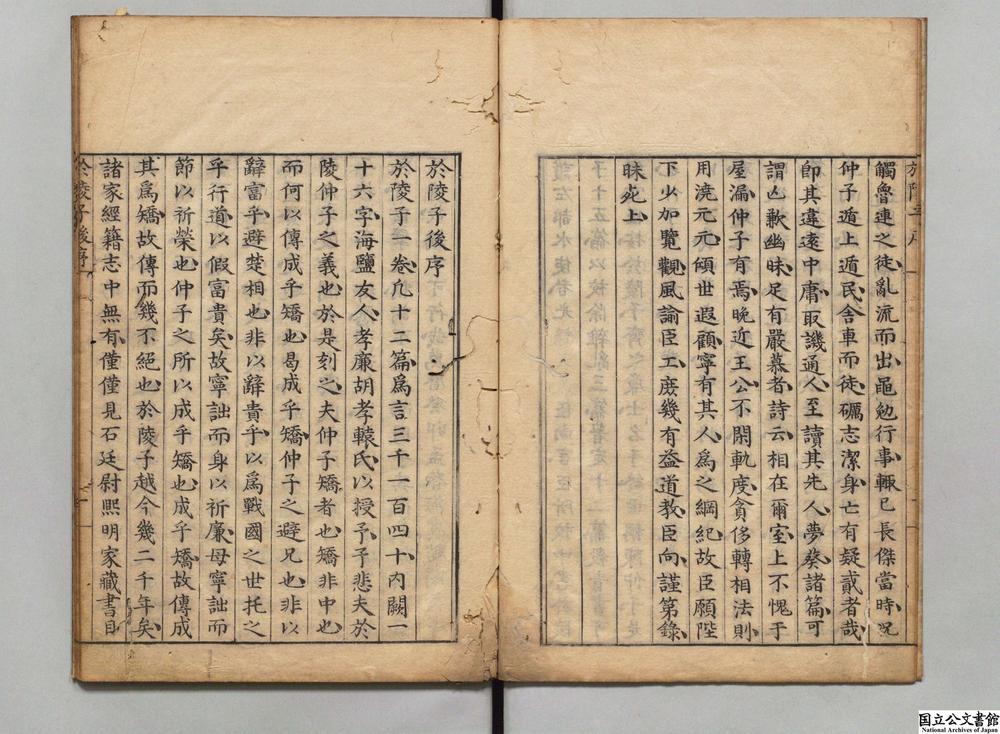 觸魯連之徒亂流而出黽勉行事輒已長傑當時况
仲子遁上遁民舍車而徒礪志潔身亡有疑貳者哉
卽其違遠中庸取譏通人至讀其先人夢癸諸篇可
謂亾歉幽昧足有嚴慕者詩云相在爾室上不愧于
屋漏仲子有焉晚近王公不閑軌度貪侈轉相法則
用澆元元傾世遐顧寧有其人爲之綱紀故臣願陛
下少加覽觀風諭臣工庻幾有益道教臣向謹第錄
昧死上
於陵子後序
於陵子一卷凢十二篇爲言三千一百四十內闕一
十六字海鹽友人孝廉胡孝轅氏以授予予悲夫於
陵仲子之義也於是刻之夫仲子矯者也矯非中也
而何以傳成乎矯也曷成乎矯仲子之避兄也非以
辭富乎避楚相也非以辭貴乎以爲戰國之世托之
乎行道以假富貴矣故寧詘而身以祈廉毋寧詘而
節以祈榮也仲子之所以成乎矯也成乎矯故傳成
其爲矯故傳而幾不絕也於陵子越今幾二千年矣
諸家經籍志中無有僅僅見石廷尉熙明家藏書目
於陵子後序
国立公文書館
National Archives of Japan